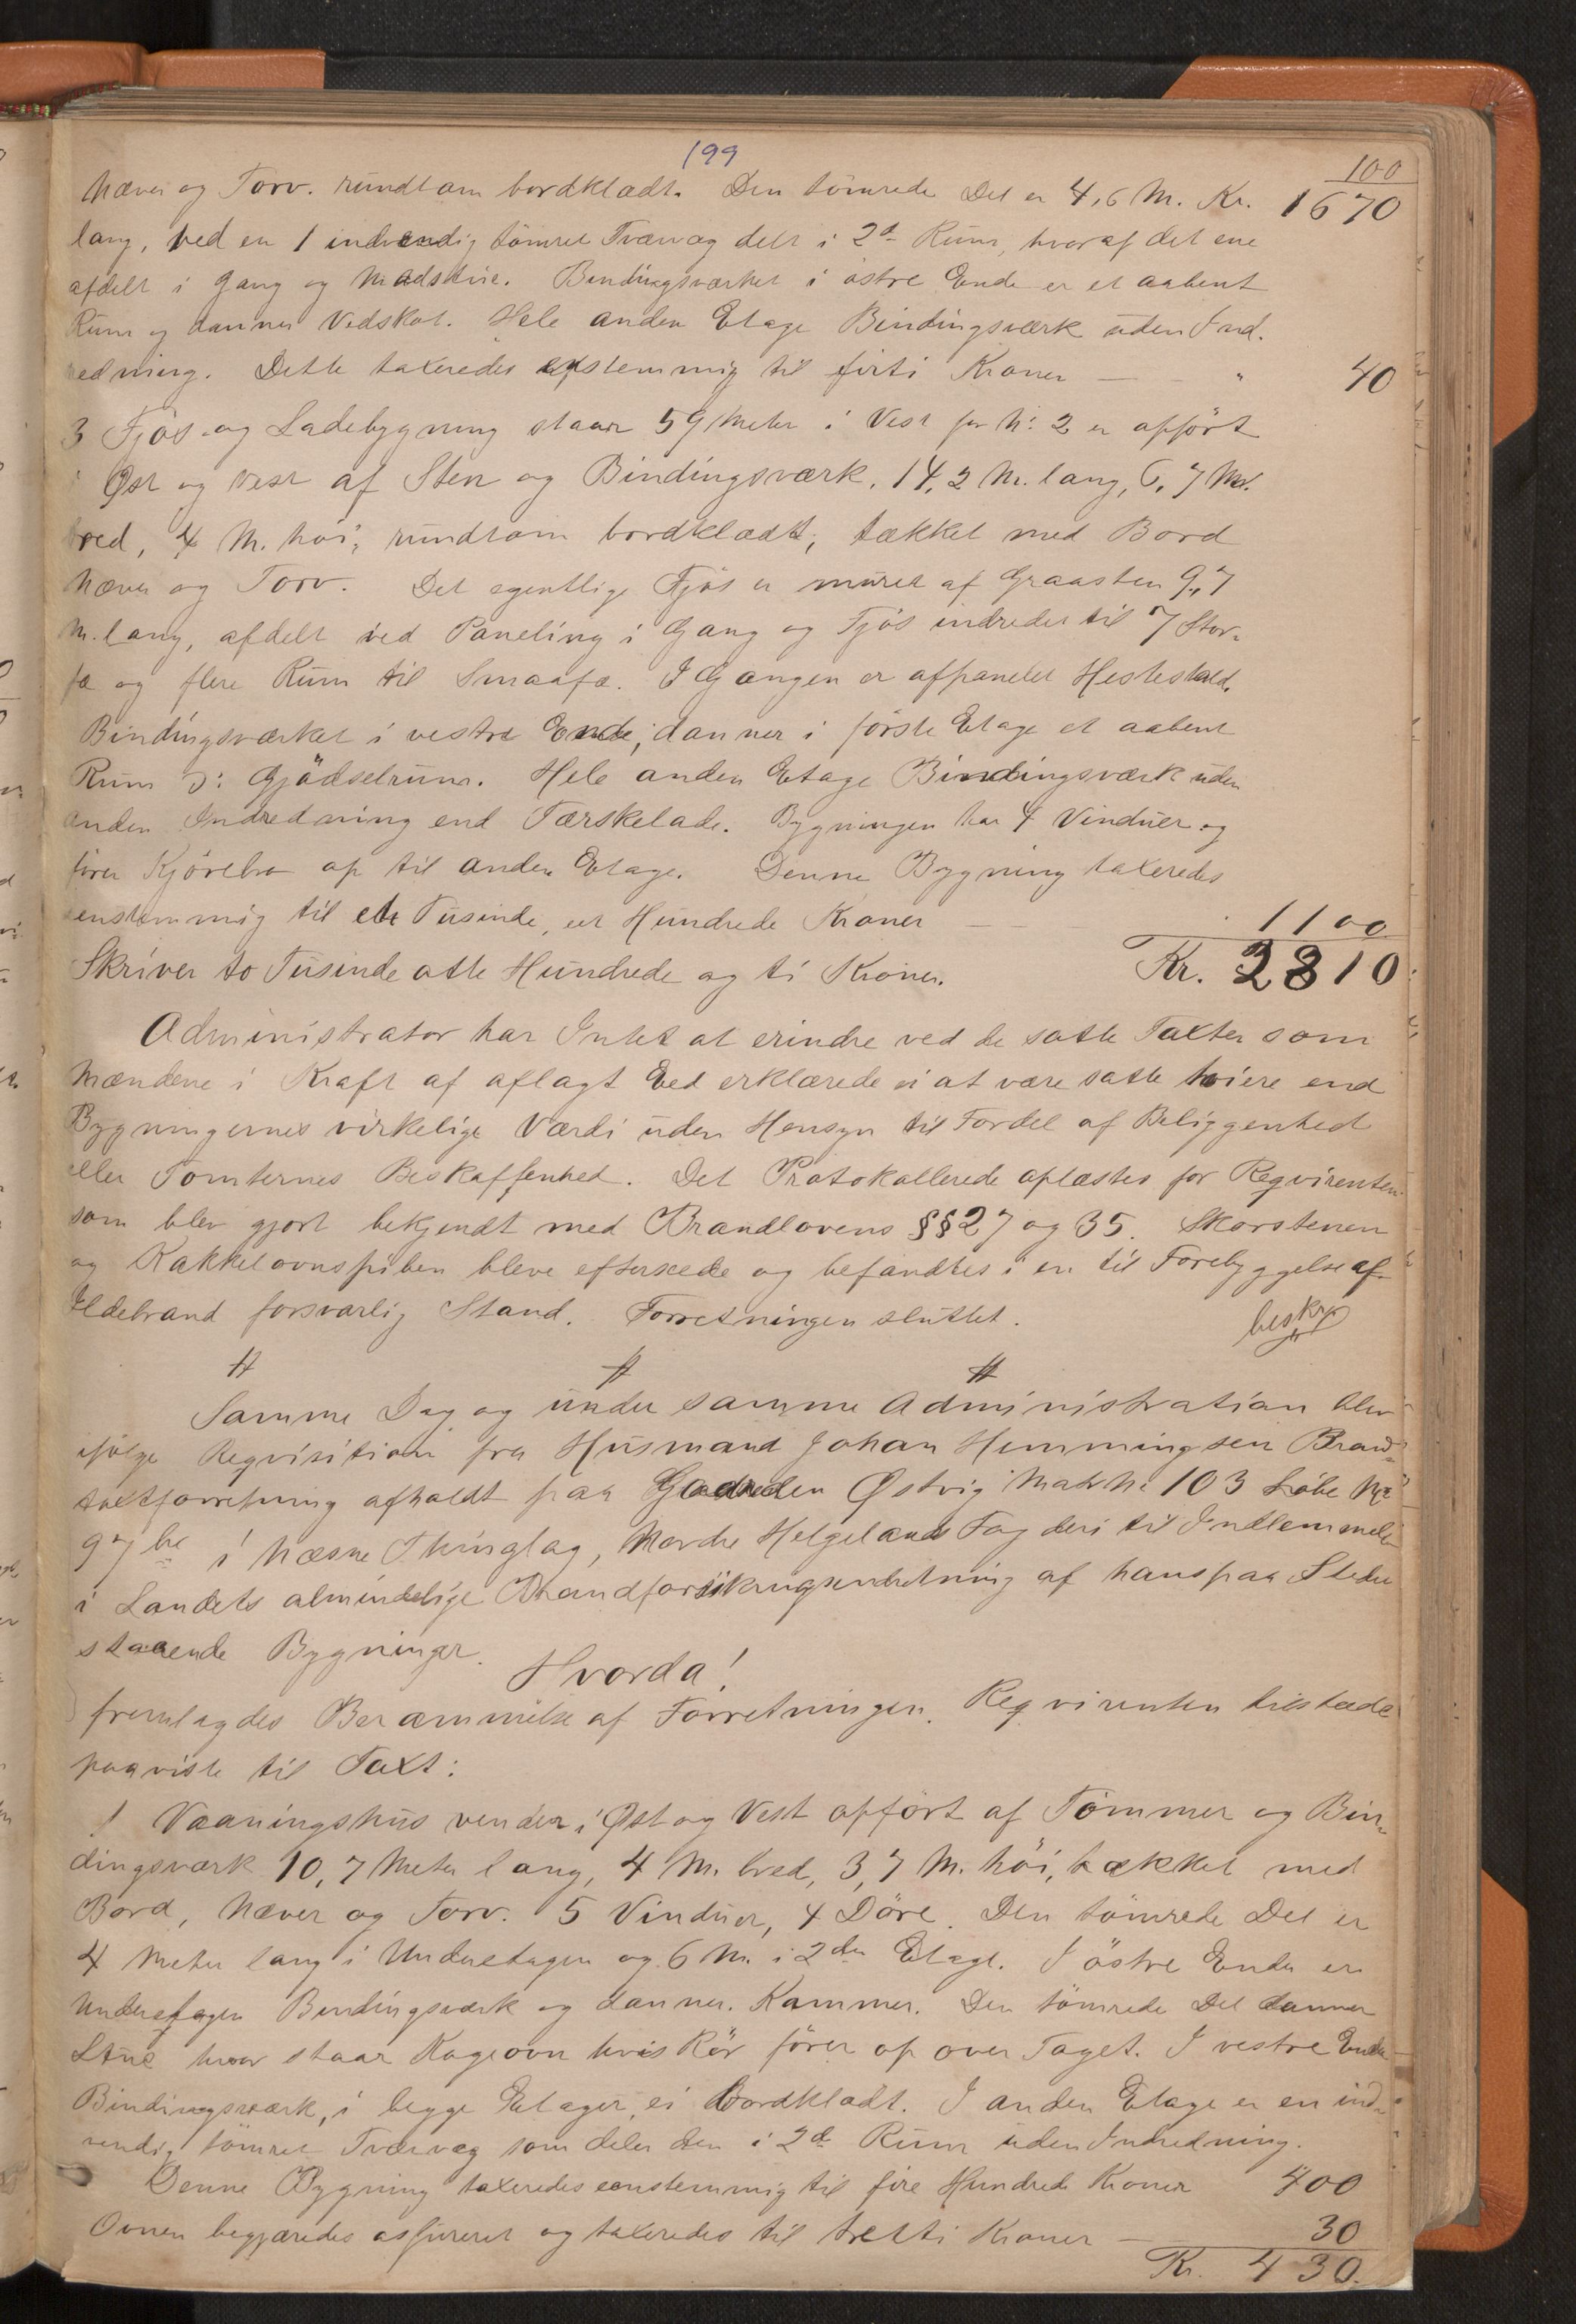 199
100
Næver og Torv. rundtom bordklædt. Den tömrede Del er 4,6 M. Kr. 1670
lang, ved en 1 indvendig tömret Tværvæg delt i 2de Rum, hvoraf det ene
afdelt i Gang og Madstue. Bindingsværket i östre Ende er et aabent
Rum og danner Vedskot. Hele anden Etage Bindingsværk uden Ind-
redning. Dette taxeredes enstemmig til firti Kroner — - " 40
3 Fjös og Ladebygning staar 59 Meter i Vest for N: 2 er opfört
i Øst og Vest af Sten og Bindingsværk, 14,2 M. lang, 6,7 M.
bred, 4 M. höi, rundtom bordklædt, tækket med Bord
Næver og Torv. Det egentlige Fjös er muret af Graasten 9,7
M. lang, afdelt ved Paneling i Gang og Fjös indredet til 7 Stor-
fæ og flere Rum til Smaafæ. I Gangen er afpanelet Hestestald.
Bindingsværket i vestre Ende, danner i förste Etage et aabent
Rum ɔ: Gjödselrum. Hele anden Etage Bindingsværk uden
anden Indredning end Tærskelade. Bygningen har 4 Vinduer og
förer Kjörebro op til anden Etage. Denne Bygning taxeredes
enstemmig til et Tusinde, et Hundrede Kroner — - 1100
Skriver to Tusinde otte Hundrede og ti Kroner. Kr. 2810
Administrator har Intet at erindre ved de satte Taxter som
Mændene i Kraft af aflagt Eed erklærede ei at være satte höiere end
Bygningernes virkelige Værdi uden Hensyn til Fordel af Beliggenhed
eller Tomternes Beskaffenhed. Det Protokollerede oplæstes for Reqvirenten
som blev gjort bekjendt med Brandlovens §§ 27 og 35. Skorstenen
og Kakkelovnspiben bleve efterseede og befandtes i en til Forebyggelse af
Ildebrand forsvarlig Stand. Forretningen sluttet.
beskr
Samme Dag og under samme Administration blev
ifölge Reqvisition fra Husmand Johan Hemmingsen Brand-
taxtforretning afholdt paa Gaarden Østvig Matr N: 103 Löbe Nr
97 be i Næsne Thinglag, Nordre Helgelands Fogderi til Indlemmelse
i Landets almindelige Brandforsikringsindretning af hans paa Stedet
staaende Bygninger.
Hvorda!
fremlagdes Berammelse af Forretningen. Reqvirenten tilstede
paaviste til Taxt:
1 Vaaningshus vender i Øst og Vest opfört af Tömmer og Bin-
dingsværk 10,7 Meter lang, 4 M. bred, 3,7 M. höi, tækket med
Bord, Næver og Torv. 5 Vinduer, 4 Döre. Den tömrede Del er
4 Meter lang i Underetagen og 6 M. i 2den Etage. I östre Ende er
Underetagen Bindingsværk og danner Kammer. Den tömrede Del danner
Stue hvor staar Kogeovn hvis Rör förer op over Taget. I vestre Ende
Bindingsværk, i begge Etager, ei bordklædt. I anden Etage er en ind-
vendig tömret Tværvæg som deler den i 2de Rum uden Indredning.
Denne Bygning taxeredes eenstemmig til fire Hundrede Kroner 400
Ovnen begjæredes assureret og taxeredes til tretti Kroner — 30
Kr. 430.